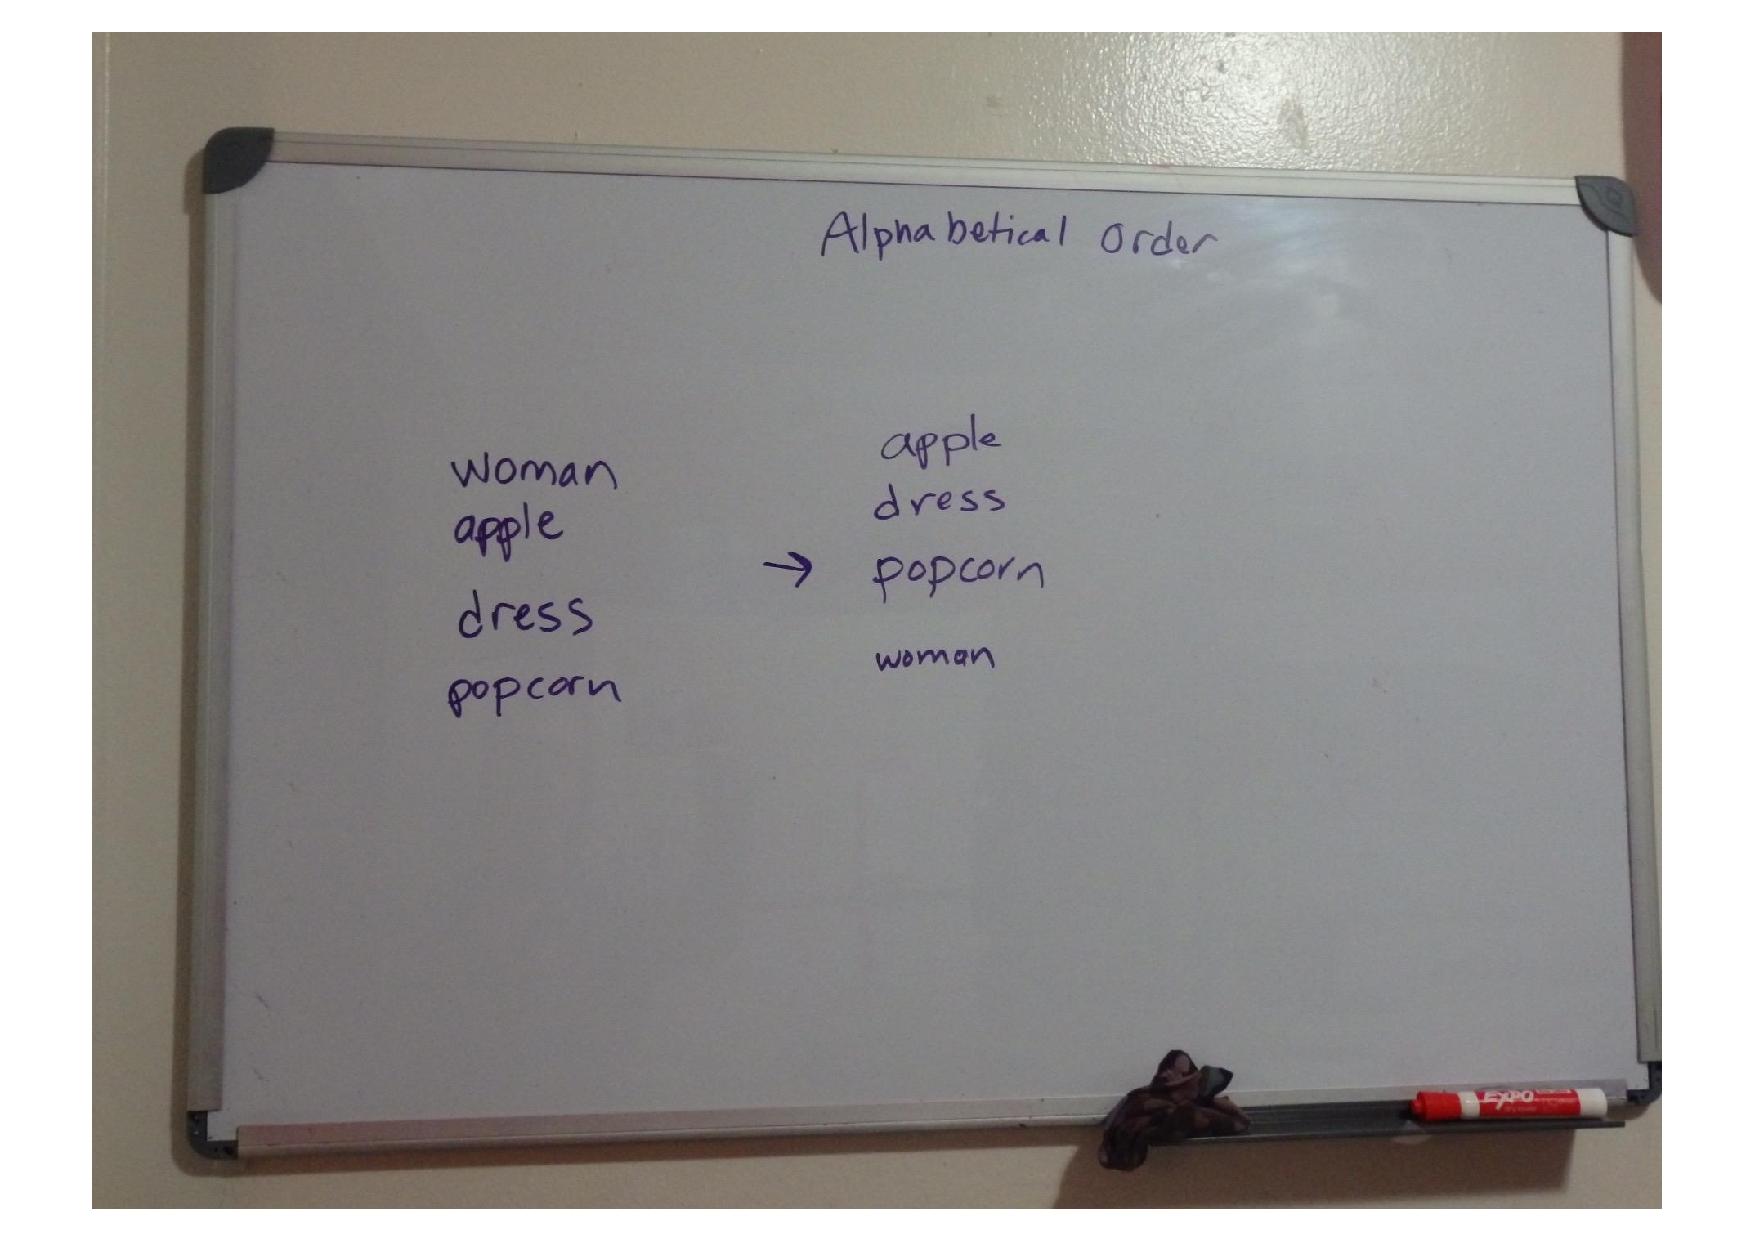 Alphabetical Order
woman
apple
dress
popcorn
→
apple
dress
popcorn
woman
EXPO